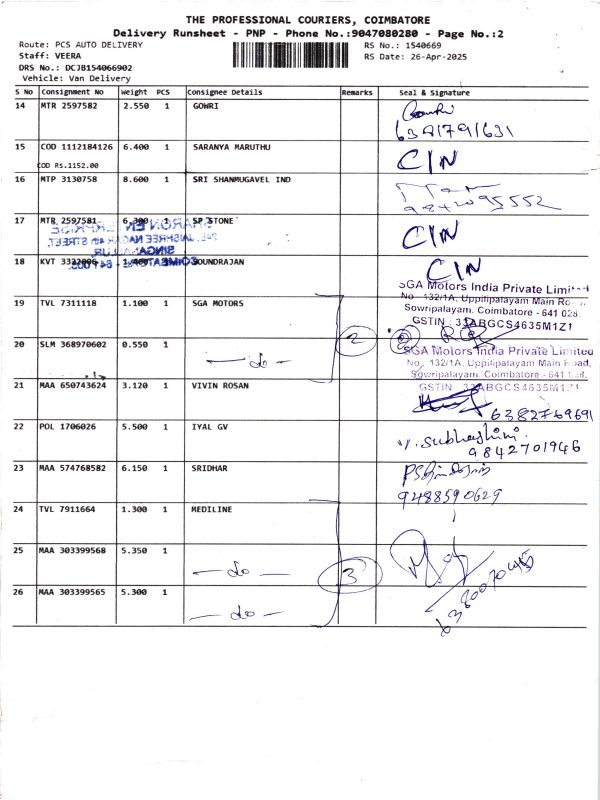 THE PROFESSIONAL COURIERS, COIMBATORE
Delivery Runsheet - PNP - Phone No.:9047080280 - Page No.:2
Route: PCS AUTO DELIVERY
Staff: VEERA
DRS No.: DCJB154066902
Vehicle: Van Delivery
RS No.: 1540669
RS Date: 26-Apr-2025
S No Consignment No Weight PCS Consignee Details Remarks Seal & Signature
14 MTR 2597582 2.550 1 GOWRI
6391791631
15 COD 1112184126 6.400 1 SARANYA MARUTHU C/N
COD Rs.1152.00
16 MTP 3130758 8.600 1 SRI SHANMUGAVEL IND
9842095552
17 MTR 2597581 6.300 1 SP STONE C/N
SHARON ENTERPRISE
NAGAR 4th STREET,
SINGANALLUR
COIMBATORE - 641 005.
18 KVT 1 SOUNDRAJAN C/N
19 TVL 7311118 1.100 1 SGA MOTORS
SGA Motors India Private Limited
No. 132/1A, Uppilipalayam Main Road,
Sowripalayam, Coimbatore - 641 028.
GSTIN : 33ABGCS4635M1Z1
20 SLM 368970602 0.550 1 — do — 2
SGA Motors India Private Limited
No. 132/1A, Uppilipalayam Main Road,
Sowripalayam, Coimbatore - 641 028.
GSTIN : 33ABGCS4635M1Z1
21 MAA 650743624 3.120 1 VIVIN ROSAN
6382769691
22 POL 1706026 5.500 1 IYAL GV
V. Subhashini
9842701946
23 MAA 574768582 6.150 1 SRIDHAR
9488590629
24 TVL 7911664 1.300 1 MEDILINE
25 MAA 303399568 5.350 1 — do — 3
26 MAA 303399565 5.300 1 — do —